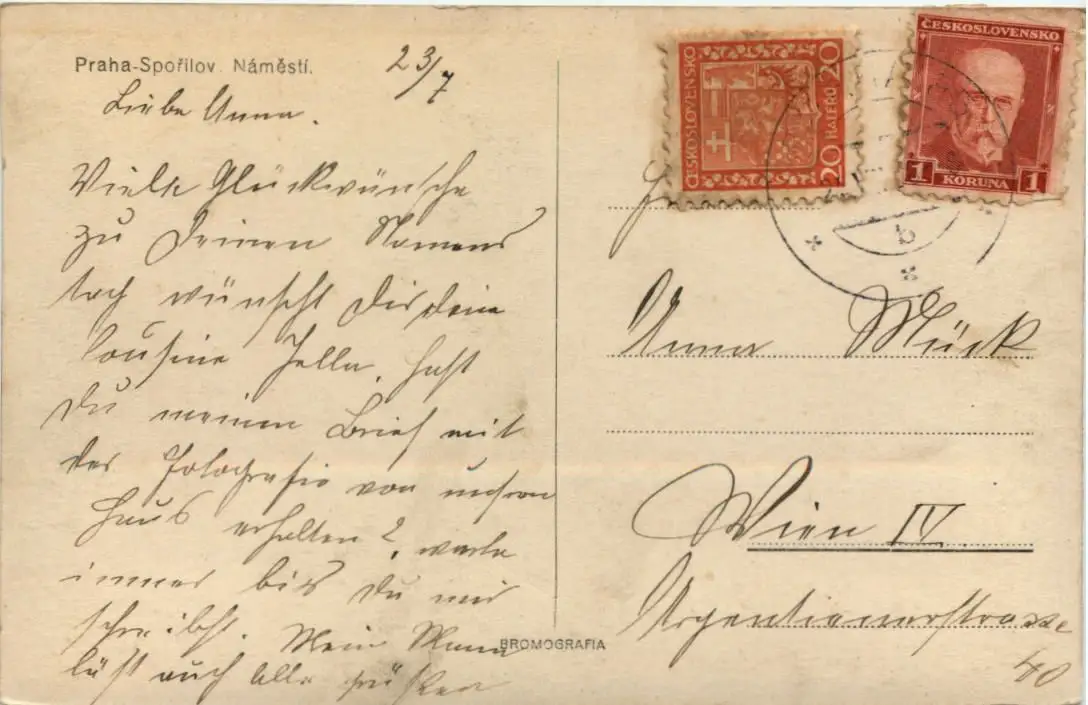 Praha-Spořilov. Náměstí.
23/7
Liebe Anna.
Viele Glückwünsche
zu Deinen Namens
tag wünscht Dir deine
Cousine Jella. Hast
Du meinen Brief mit
der Fotografie von unsren
Haus erhalten? warte
immer bis Du mir
schreibst. Mein Mann
läst auch Alle grüßen
BROMOGRAFIA
ČESKOSLOVENSKO
20 HALÉŘŮ 20
ČESKOSLOVENSKO
1 KORUNA 1
b
Anna Mück
Wien IV.
Argentienerstrasse
40